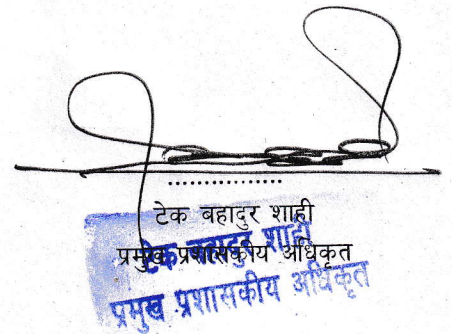 ................
टेक बहादुर शाही
प्रमुख प्रशासकीय अधिकृत
टेक बहादुर शाही
प्रमुख प्रशासकीय अधिकृत